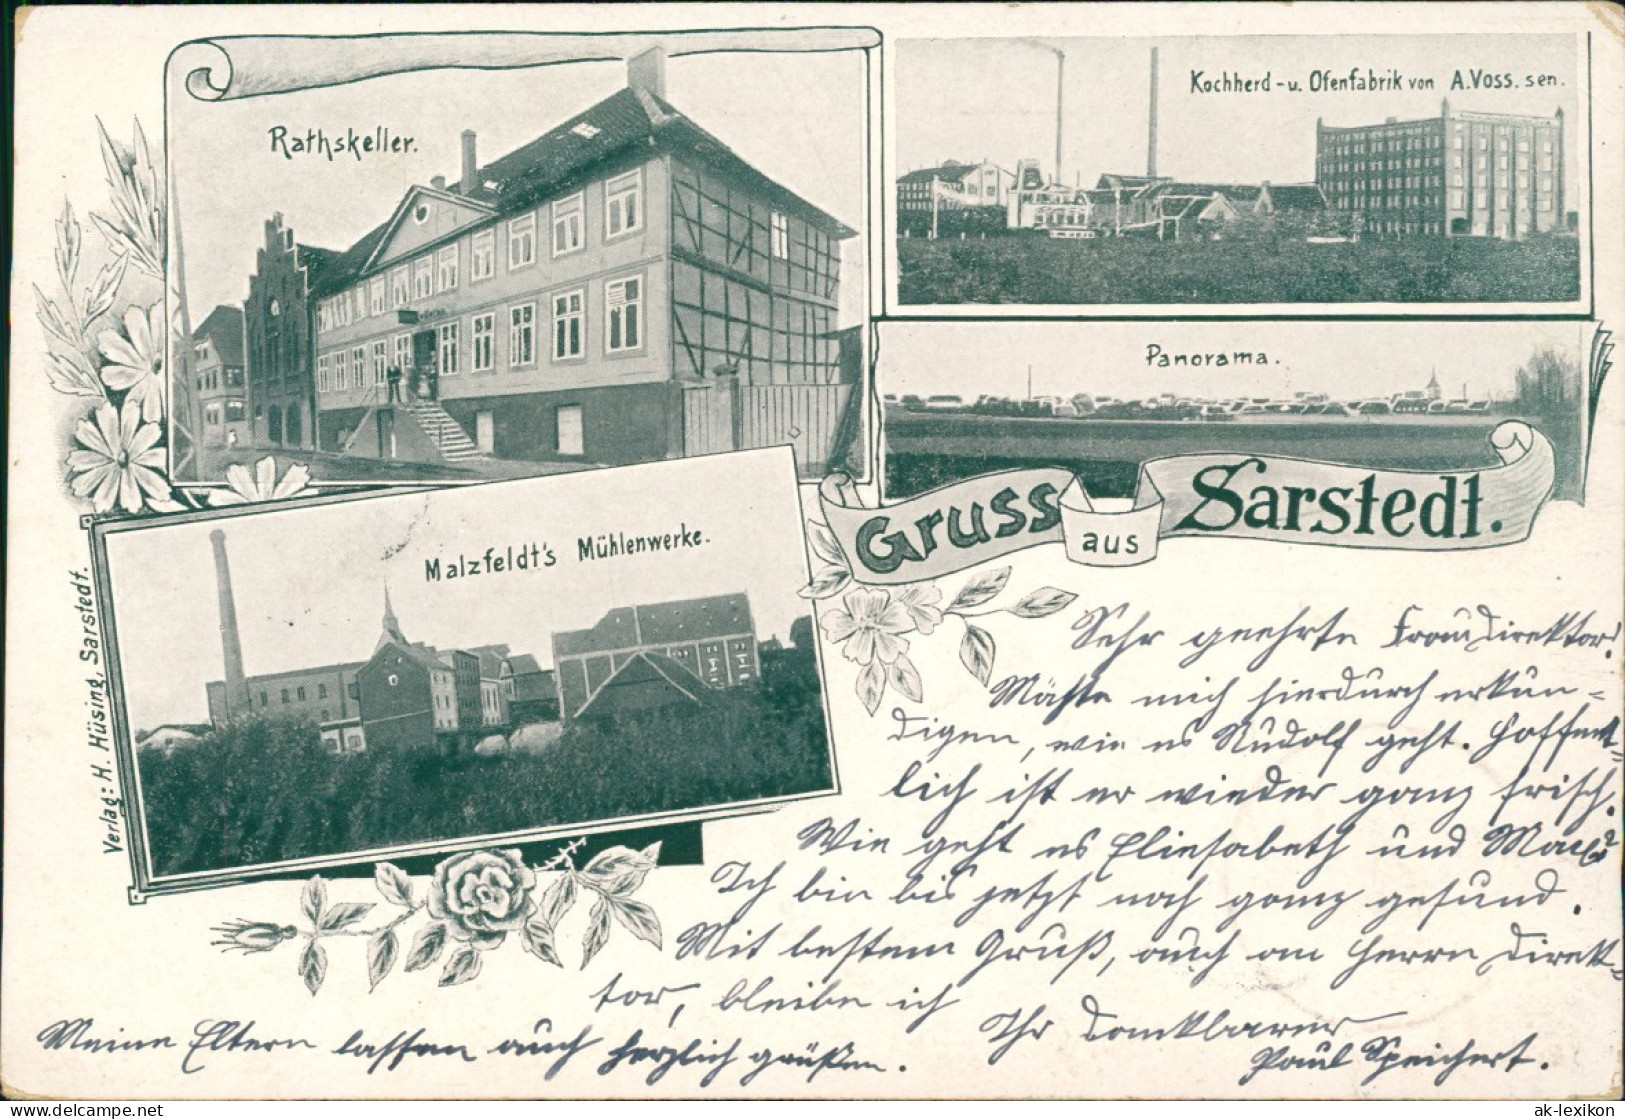 Rathskeller.
Kochherd - u. Ofenfabrik von A. Voss. sen.
Panorama.
Gruss aus Sarstedt.
Malzfeldt's Mühlenwerke.
Verlag: H. Hüsing, Sarstedt.
Sehr geehrte Frau Direktor!
Möchte mich hierdurch erkun-
digen, wie es Rudolf geht. Hoffent-
lich ist er wieder ganz frisch.
Wie geht es Elisabeth und Max?
Ich bin bis jetzt noch ganz gesund.
Mit bestem Gruß, auch an Herrn Direk-
tor, bleibe ich
Ihr dankbarer
Paul Speichert.
Meine Eltern lassen auch herzlich grüßen.
delcampe.net
ak-lexikon